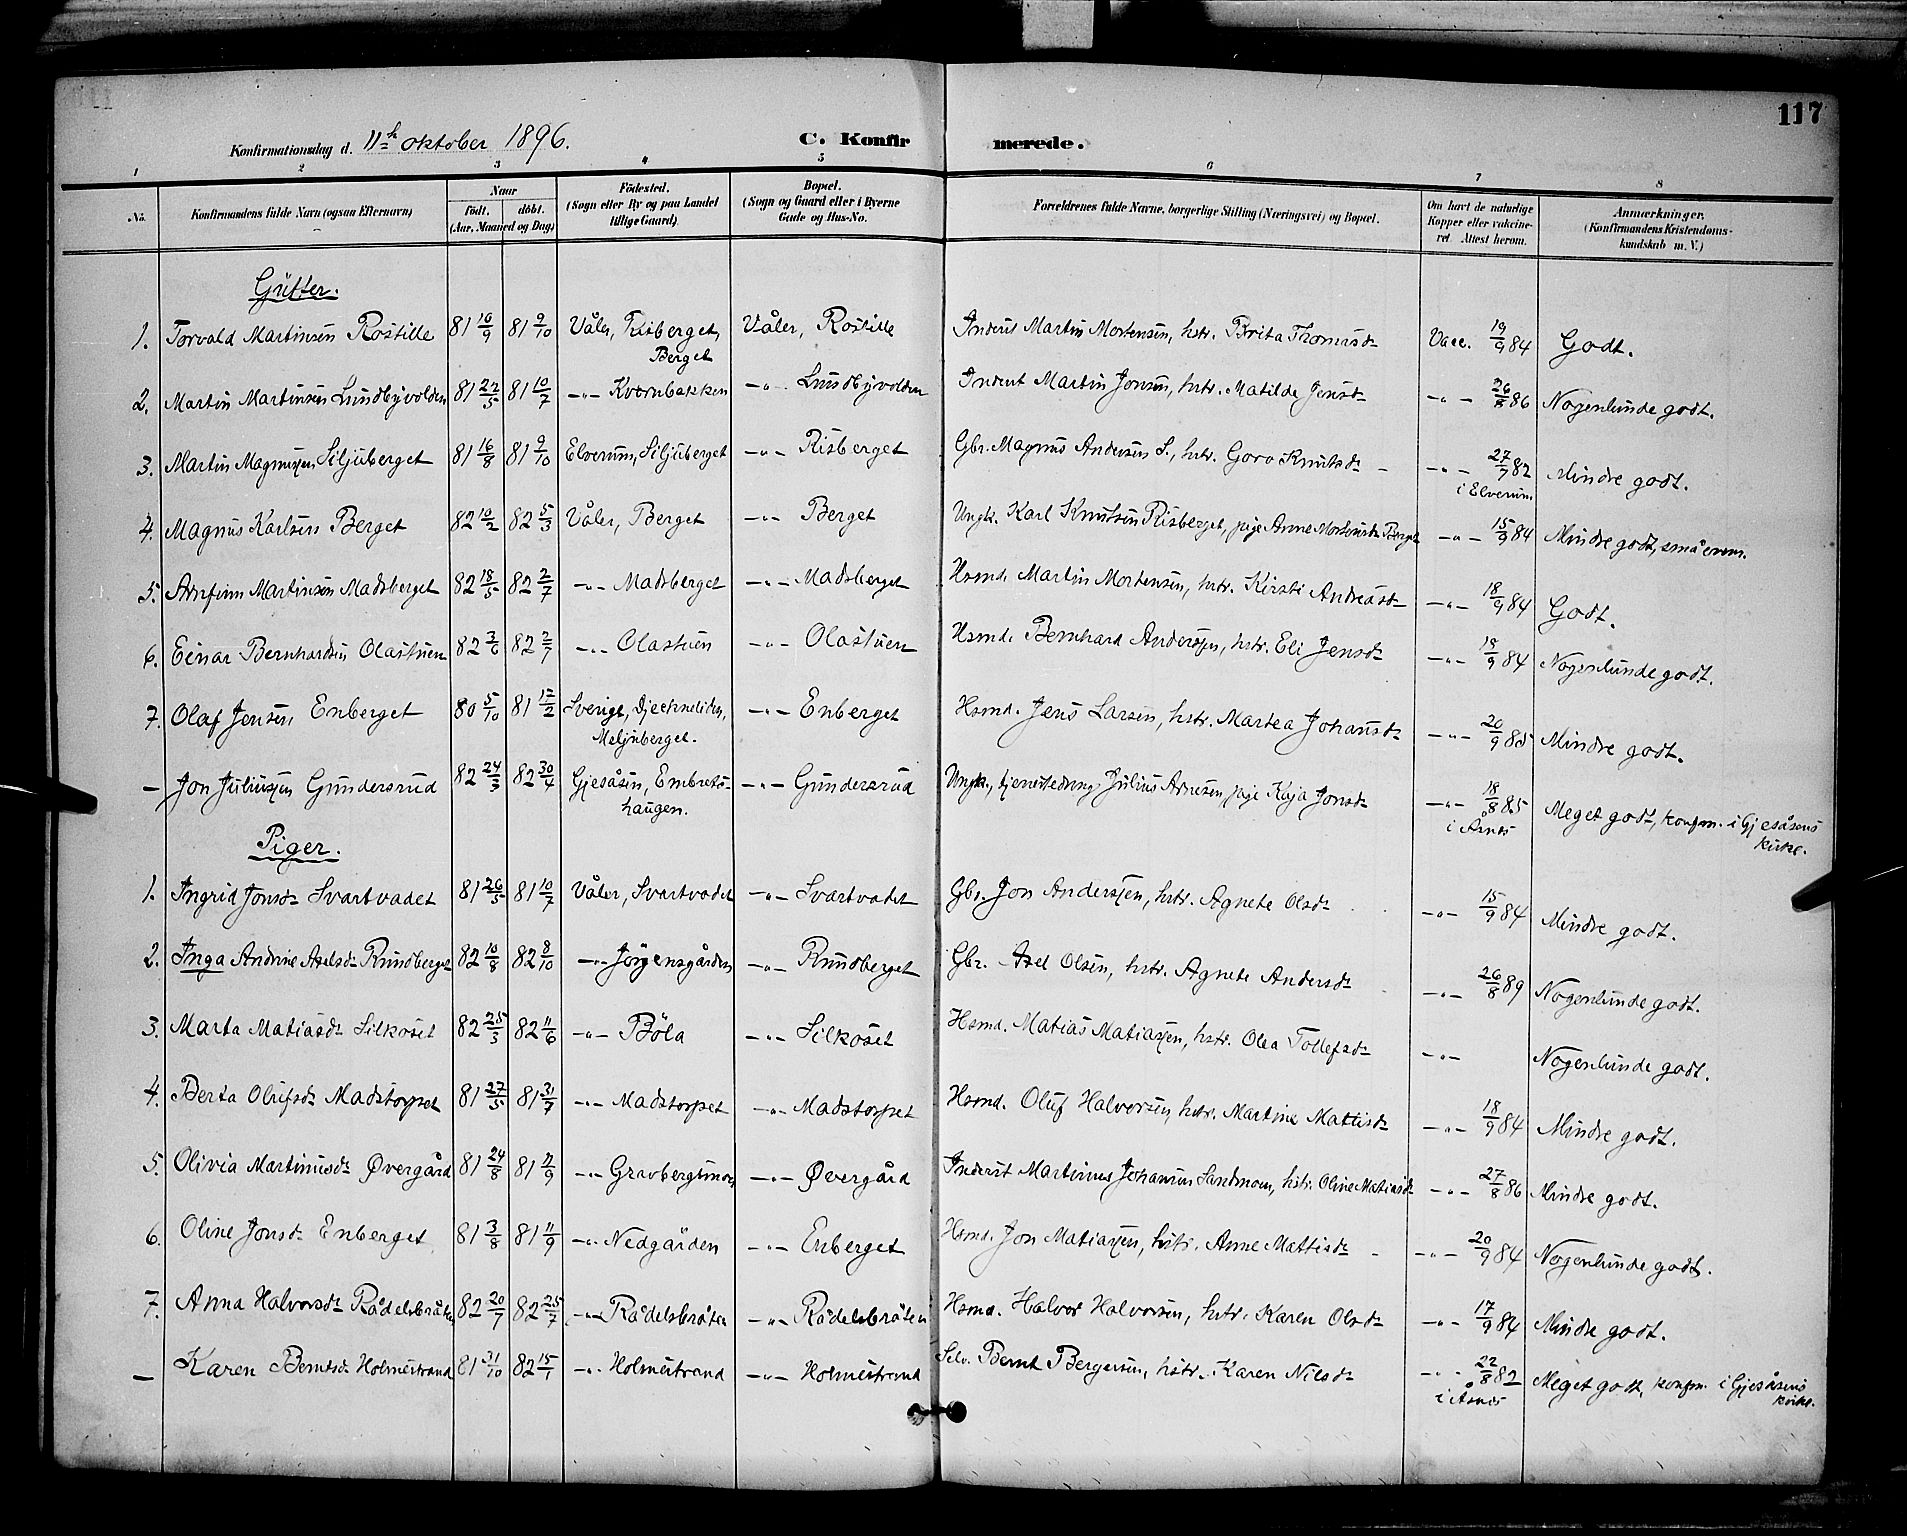 117
Konfirmationsdag d. 11h oktober 1896. C. Konfirmerede.
1 2 3 4 5 6 7 8
No. Konfirmandens fulde Navn (ogsaa Efternavn) Naar födt. döbt. (Aar, Maaned og Dag) Födested. (Sogn eller By og paa Landet tillige Gaard). Bopæl. (Sogn og Gaard eller i Byerne Gade og Hus-No. Forældrenes fulde Navne, borgerlige Stilling (Næringsvei) og Bopæl. Om havt de naturlige Kopper eller vakcineret. Attest herom. Anmærkninger. (Konfirmandens Kristendomskundskab m. V.)
Gutter.
1. Torvald Martinsen Rostille 81 16/9 81 9/10 Våler, Risberget, Berget Våler, Rostille Inderst Martin Mortensen, hstr. Brita Thomasdr Vacc. 19/9 84 Godt.
2. Martin Martinsen Lundbyvolden 81 22/5 81 10/7 -"- Kvernbakken -"- Lundbyvolden Inderst Martin Jonsen, hstr. Matilde Jensdr -"- 26/8 86 Nogenlunde godt.
3. Martin Magnussen Siljuberget 81 16/8 81 9/10 Elverum, Siljuberget -"- Risberget Gbr. Magnus Andersen S., hstr. Goro Knutsdr -"- 27/7 82 i Elverum Mindre godt.
4. Magnus Karlsen Berget 82 10/2 82 5/3 Våler, Berget -"- Berget Ungk. Karl Knutsen Risberget, pige Anne Mortensdr Berget -"- 15/9 84 Mindre godt, små evner.
5. Arnfinn Martinsen Madsberget 82 18/5 82 2/7 -"- Madsberget -"- Madsberget Hsmd. Martin Mortensen, hstr. Kirsti Andreasdr -"- 18/9 84 Godt.
6. Einar Bernhardsen Olastuen 82 3/6 82 2/7 -"- Olastuen -"- Olastuen Hsmd. Bernhard Anderssen, hstr. Eli Jensdr -"- 15/9 84 Nogenlunde godt.
7. Olaf Jensen Enberget 80 5/10 81 12/2 Sverige, Meljuberget. -"- Enberget Hsmd. Jens Larsen, hstr. Martea Johansdr -"- 20/9 85 Mindre godt.
- Jon Juliussen Gundersrud 82 24/3 82 30/4 Gjesåsen, Embretshaugen. -"- Gundersrud Ungk., tjenestedreng Julius Arnesen, pige Kaja Jonsdr -"- 18/8 85 i Åsnes Meget godt, konfm. i Gjesåsens kirke.
Piger.
1. Ingrid Jonsdr Svartvadet 81 26/5 81 10/7 Våler, Svartvadet -"- Svartvadet Gbr. Jon Anderssen, hstr. Agnete Olsdr -"- 15/9 84 Mindre godt.
2. Inga Andrine Axelsdr Rundberget 82 10/8 82 8/10 -"- Jörgensgården -"- Rundberget Gbr. Axel Olsen, hstr. Agnete Andersdr -"- 26/8 89 Nogenlunde godt.
3. Marta Matiasdr Silkoset 82 25/3 82 11/6 -"- Böla -"- Silkoset Hsmd. Matias Matiassen, hstr. Olea Tollefsdr -"- Nogenlunde godt.
4. Berta Olufsdr Madstorpet 81 27/5 81 31/7 -"- Madstorpet -"- Madstorpet Hsmd. Oluf Halvorsen, hstr. Martine Mattisdr -"- 18/9 84 Mindre godt.
5. Olivia Martinusdr Øvergård 81 24/8 81 11/9 -"- Gravbergsmoen -"- Øvergård Inderst Martinus Johansen Sandmoen, hstr. Oline Matiasdr -"- 27/8 86 Mindre godt.
6. Oline Jonsdr Enberget 81 3/8 81 11/9 -"- Nedgården -"- Enberget Hsmd. Jon Matiassen, hstr. Anne Mattisdr -"- 20/9 84 Nogenlunde godt.
7. Anna Halvorsdr Rådelsbråten 82 20/7 82 25/7 -"- Rådelsbråten -"- Rådelsbråten Hsmd. Halvor Halvorsen, hstr. Karen Olsdr -"- 17/9 84 Mindre godt.
- Karen Berntsdr Holmestrand 81 31/10 82 15/1 -"- Holmestrand -"- Holmestrand Selv. Bernt Bergersen, hstr. Karen Nilsdr -"- 22/8 82 i Åsnes Meget godt, konfm. i Gjesåsens kirke.